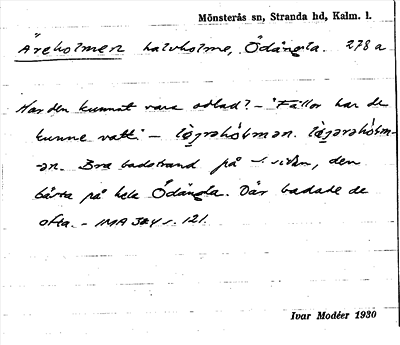 Mönsterås sn, Stranda hd, Kalm. l.
Äreholmen halvholme, Ödängla. 278 a
Har den kunnat vara odlad? - "Fällor har de
kunne vatt" -
-ən. Bra badstrand på sidan, den
bästa på hela Ödängla. Där badade de
ofta. - IMA s. 121.
Ivar Modéer 1930